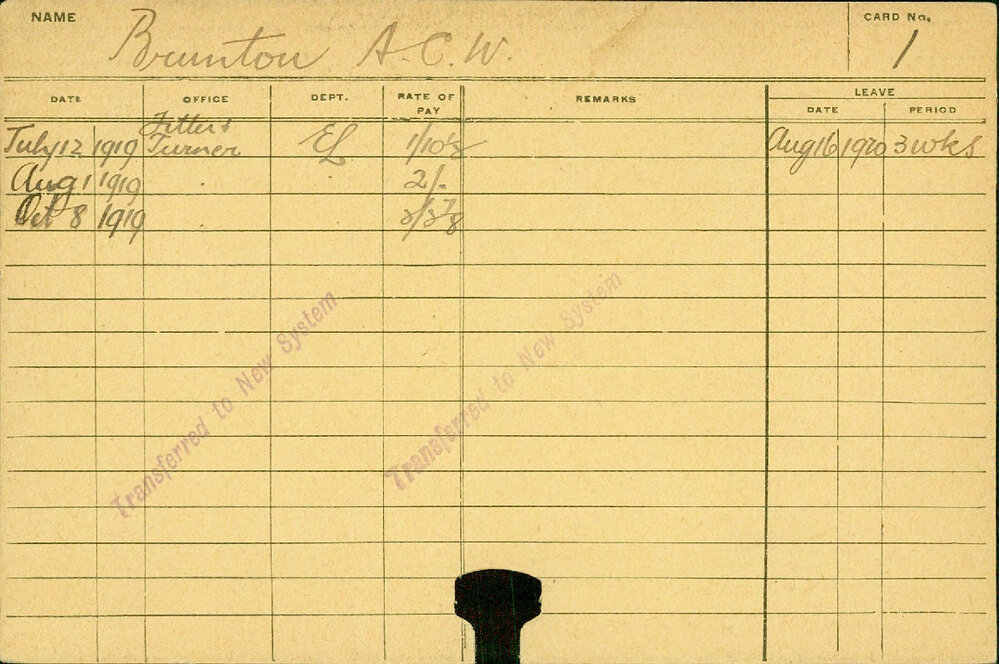 NAME
Brunton A.C.W.
CARD No. 1
DATE OFFICE DEPT. RATE OF PAY REMARKS LEAVE
DATE PERIOD
July 12 1919 Fitter & Turner EL Aug 16 1920 3 wks
Aug 1 1919 " " 2/-
Oct 8 1919 " "
Transferred to New System
Transferred to New System